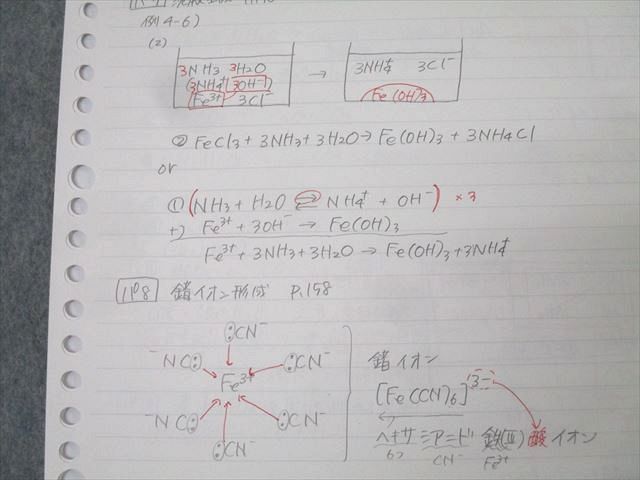 例4-6)
(2)
3NH3 3H2O
(3NH4+ 3OH-)
Fe3+ 3Cl-
→
3NH4+ 3Cl-
Fe(OH)3
② FeCl3 + 3NH3 + 3H2O → Fe(OH)3 + 3NH4Cl
or
① (NH3 + H2O ⇄ NH4+ + OH-) ×3
+) Fe3+ + 3OH- → Fe(OH)3
Fe3+ + 3NH3 + 3H2O → Fe(OH)3 + 3NH4+
パ8 錯イオン形成 P.158
:CN-
-NC: :CN-
Fe3+
-NC: :CN-
:CN-
錯イオン
[Fe(CN)6]3-
ヘキサシアニド鉄(Ⅲ)酸イオン
6つ CN- Fe3+